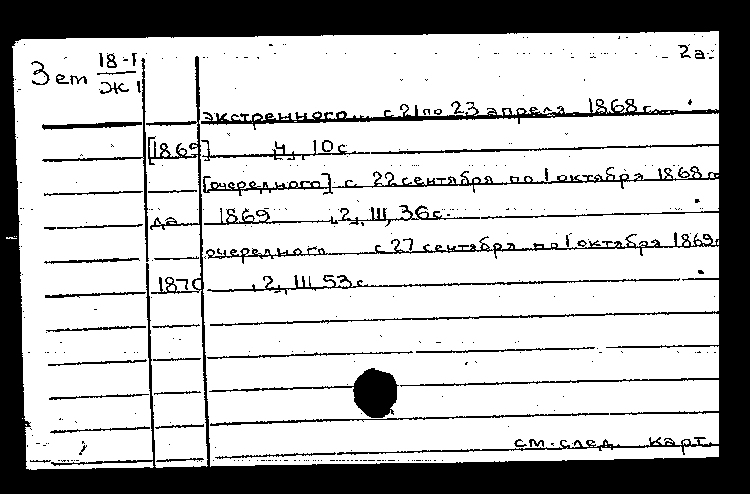 2а.
Зет 18-1
Ж1
экстренного... с 21 по 23 апреля 1868 г.
[1869] Ч., 10 с.
[очередного] с 22 сентября по 1 октября 1868 г.
да 1869 , 2, III, 36 с.
очередного с 27 сентября по 1 октября 1869 г.
1870 , 2, III, 53 с.
см. след. карт.